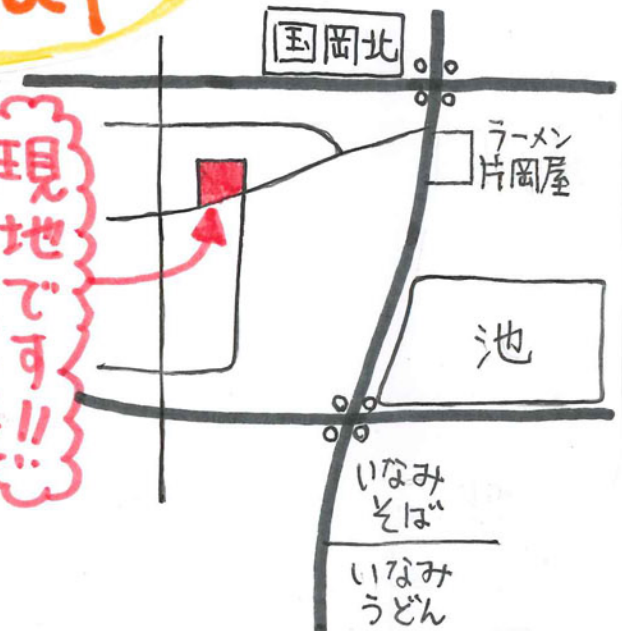 国岡北
ラーメン
片岡屋
現地です!!
池
いなみ
そば
いなみ
うどん